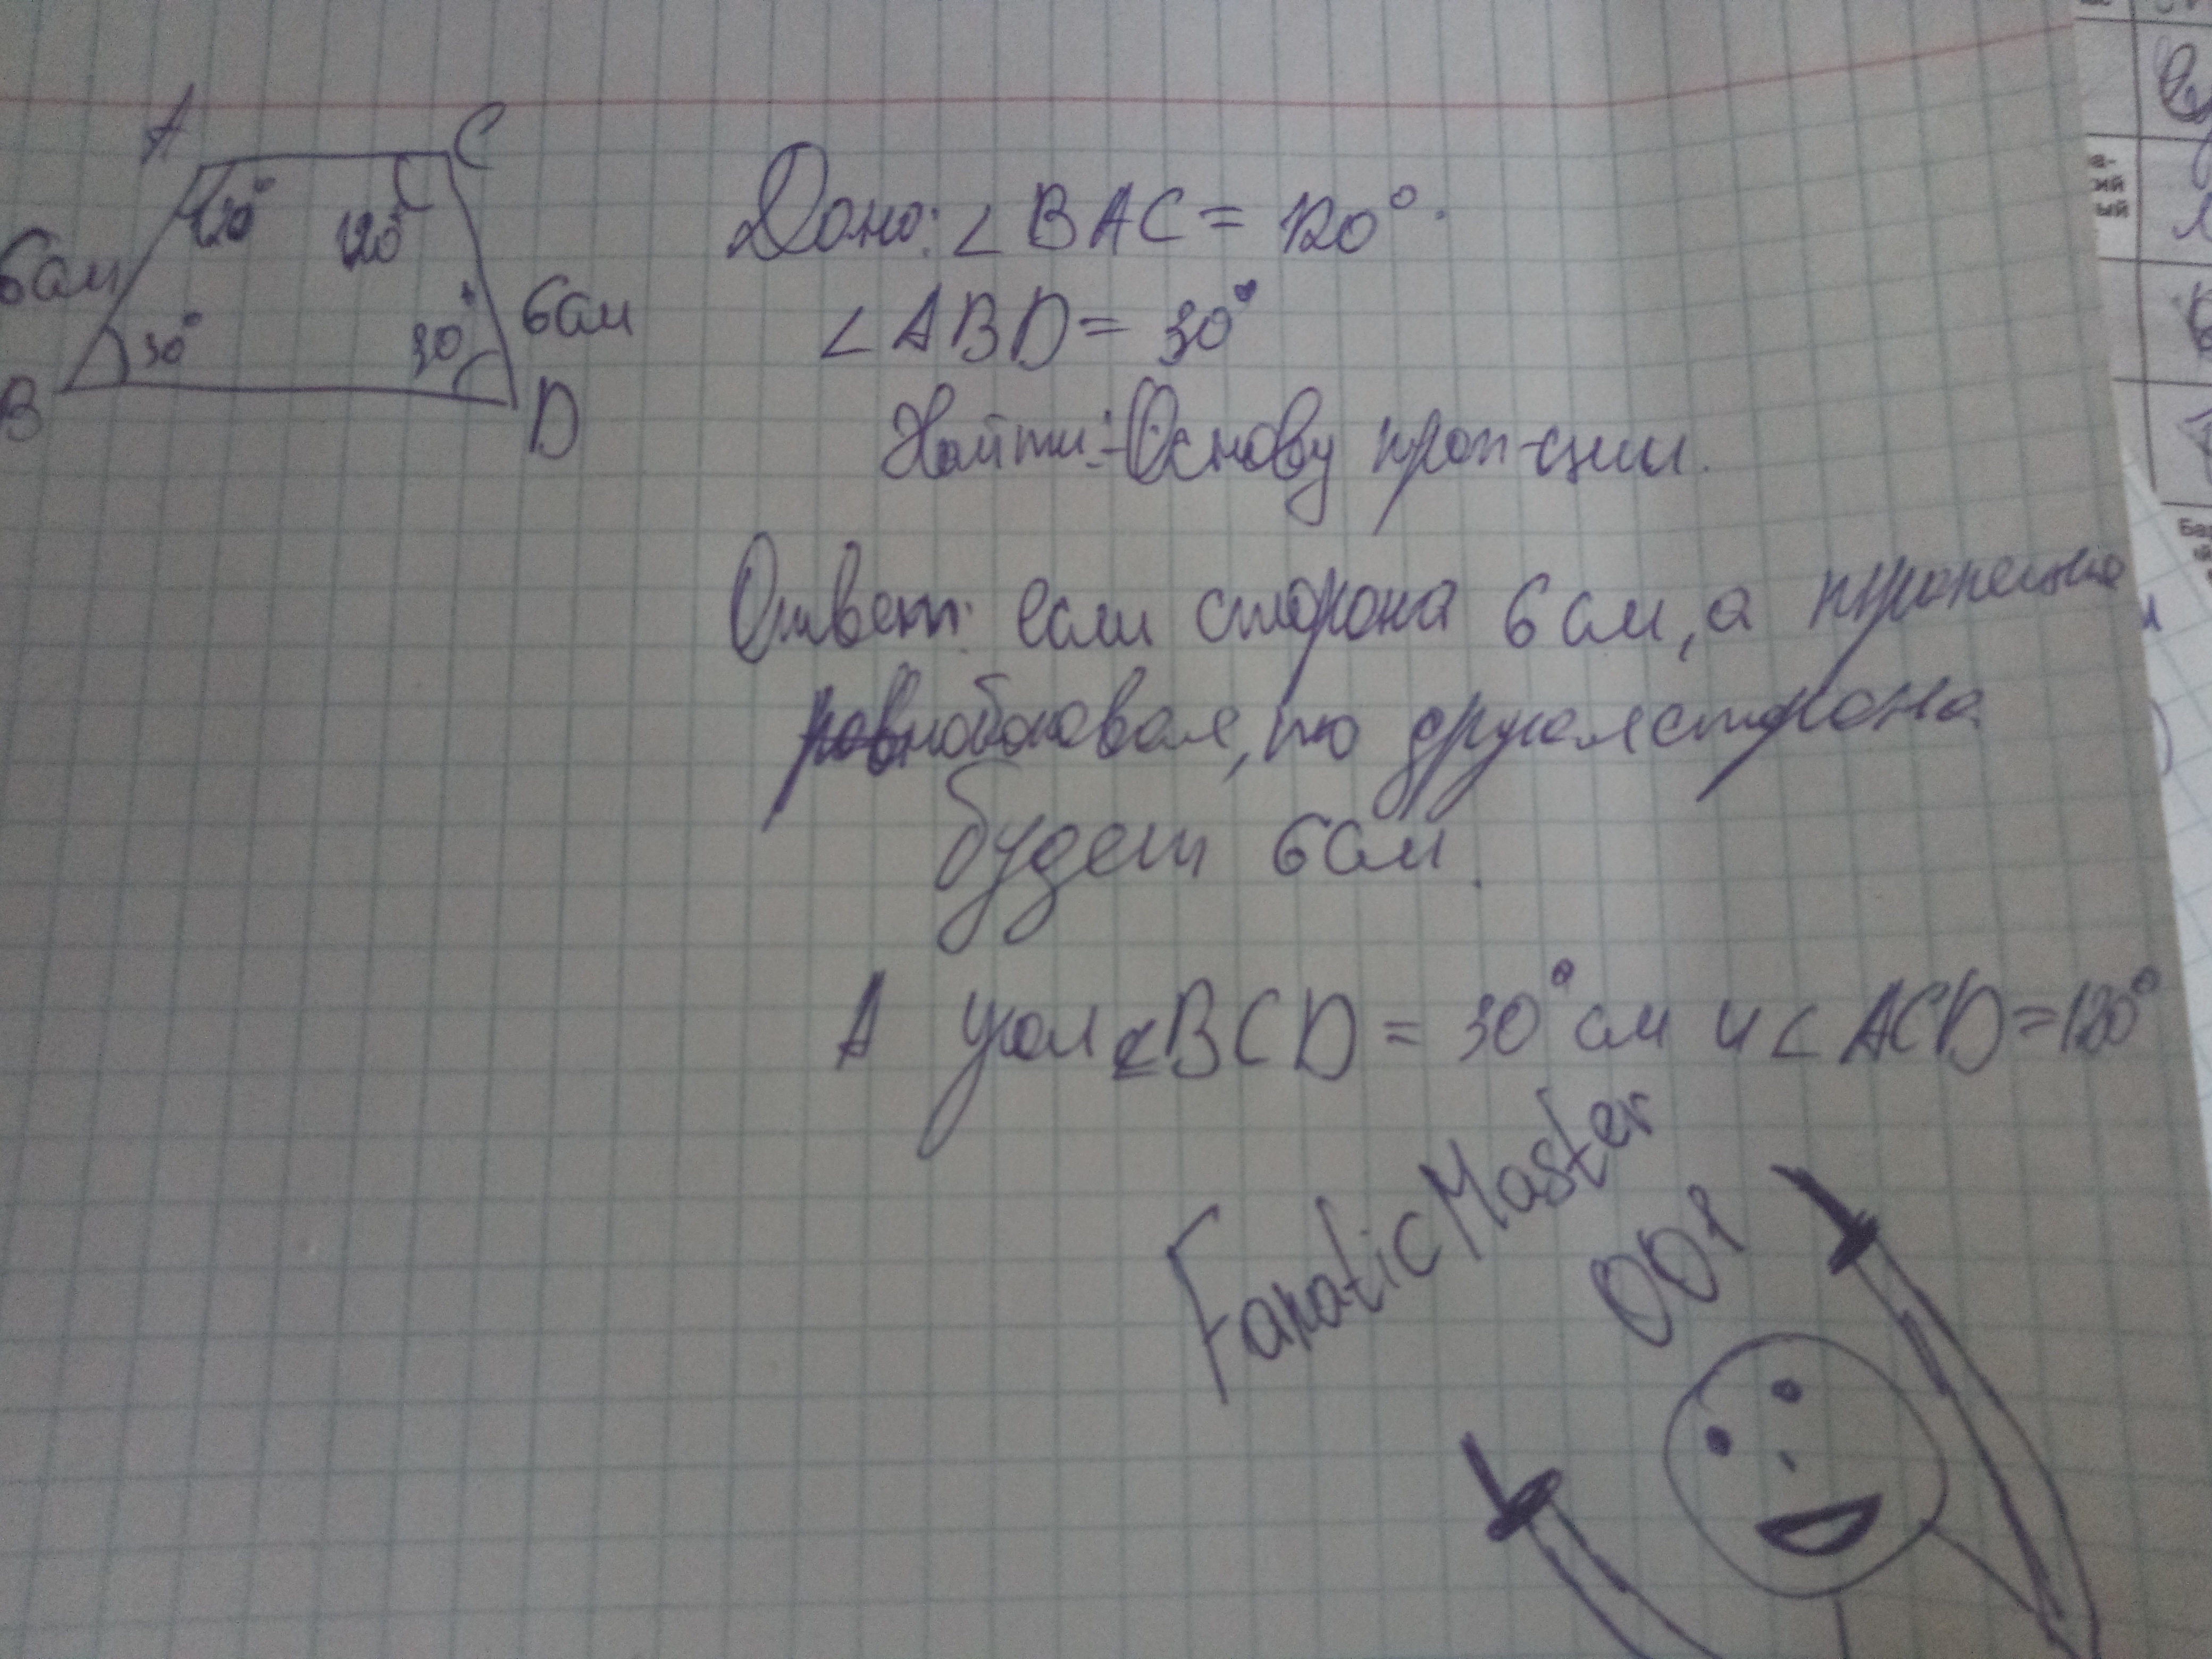 A C
120° 120°
6см 6см
30° 30°
B D
Дано: ∠BAC = 120°.
∠ABD = 30°
Найти: Основу трап-ции.
Ответ: если сторона 6 см, а трапеция
равнобоковая, то другая сторона
будет 6 см.
А угол ∠BCD = 30° см и ∠ACD = 120°
FanaticMaster
001